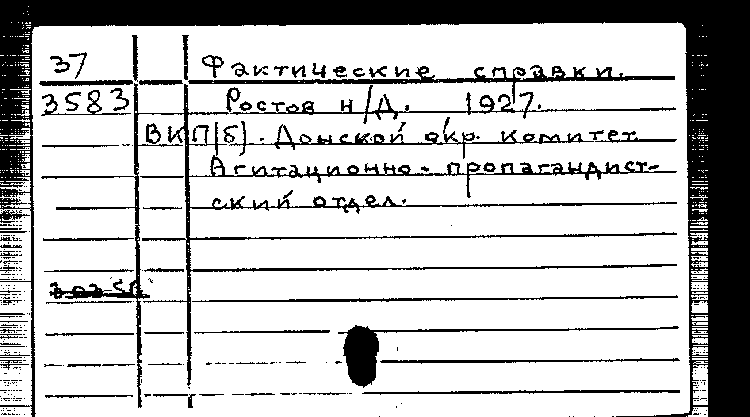 37 Фактические справки.
3583 Ростов н/Д. 1927.
ВКП(б). Донской окр. комитет
Агитационно-пропагандист-
ский отдел.